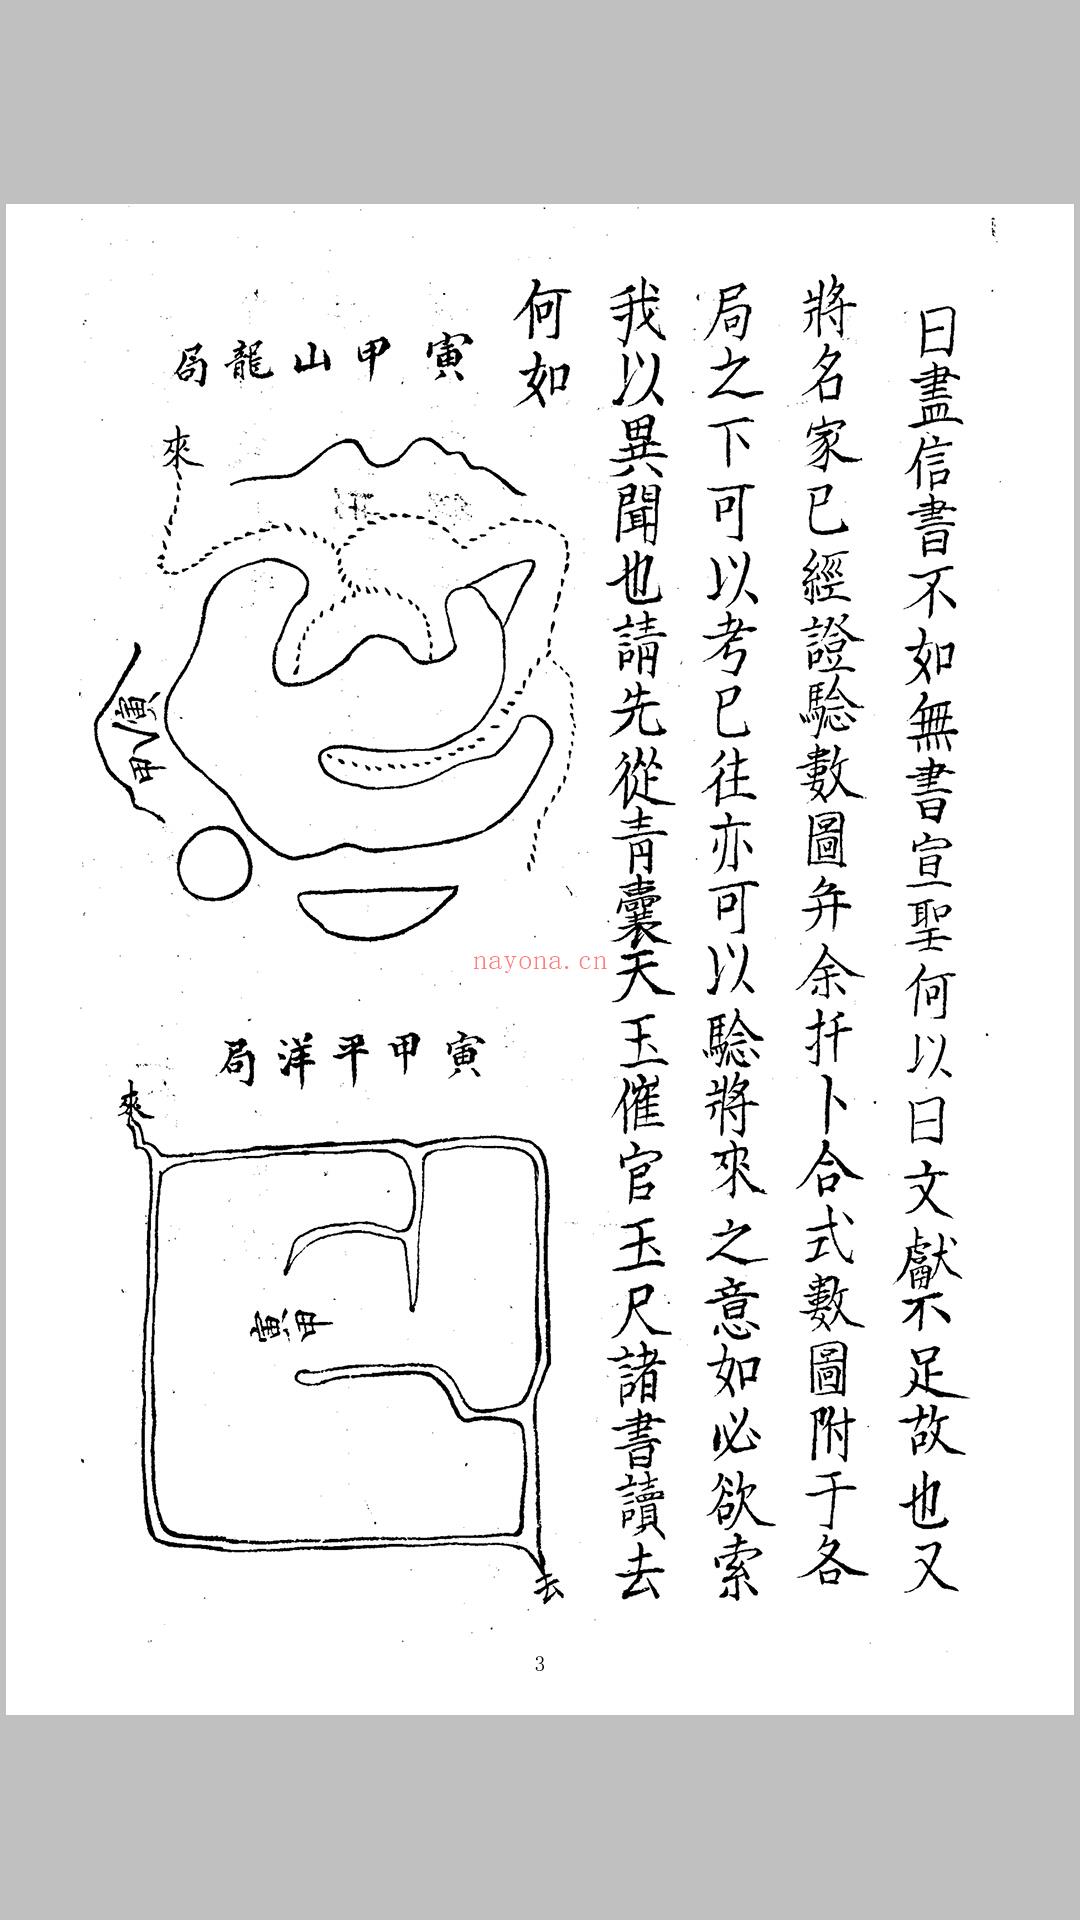 曰盡信書不如無書宣聖何以曰文獻不足故也又
將名家已經證驗數圖弁余扦卜合式數圖附于各
局之下可以考已往亦可以驗將來之意如必欲索
我以異聞也請先從青囊天玉催官玉尺諸書讀去
何如
寅甲山龍局
來
寅
甲
nayona.cn
寅甲平洋局
來
甲
寅
去
3